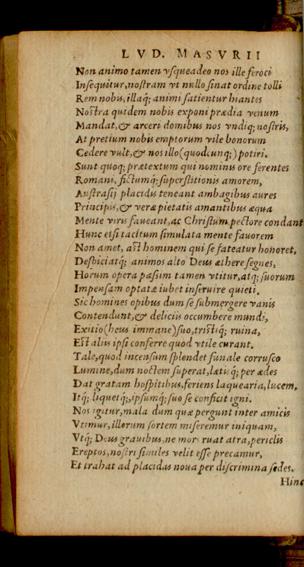 LVD. MASVRII
Non animo tamen vsqueadeo nos ille feroci
Insequitur, nostram vt nullo sinat ordine tolli
Rem nobis, illaq; animi satientur hiantes
Nostra quidem nobis exponi prædia venum
Mandat, & arceri domibus nos vndiq; nostris,
At pretium nobis emptorum vile bonorum
Cedere vult, & nos illo (quodcunq;) potiri.
Sunt quoq; prætextum qui nominis ore ferentes
Romani, fictumq; superstitionis amorem,
Austrasij placidis teneant ambagibus aures
Principis, & veræ pietatis amantibus æqua
Mente viris faueant, ac Christum pectore condant
Hunc etsi tacitum simulata mente fauorem
Non amet, ast hominem qui se fateatur honoret,
Despiciatq; animos alto Deus æthere segnes,
Horum opera passim tamen vtitur, atq; suorum
Impensam optatæ iubet inseruire quieti.
Sic homines opibus dum se submergere vanis
Contendunt, & deliciis occumbere mundi,
Exitio (heus immane) suo, tristiq; ruina,
Est aliis ipsi conferre quod vtile curant.
Tale, quod incensum splendet funale corusco
Lumine, dum noctem superat, latisq; per ædes
Dat gratam hospitibus, feriens laquearia, lucem,
Itq; liquetq;, ipsumq; suo se conficit igni.
Nos igitur, mala dum quæ pergunt inter amicis
Vtimur, illorum sortem miseremur iniquam,
Vtq; Deus grauibus, ne mox ruat atra, periclis
Ereptos, nostri similes velit esse precamur,
Et trahat ad placidas noua per discrimina sedes.
Hinc